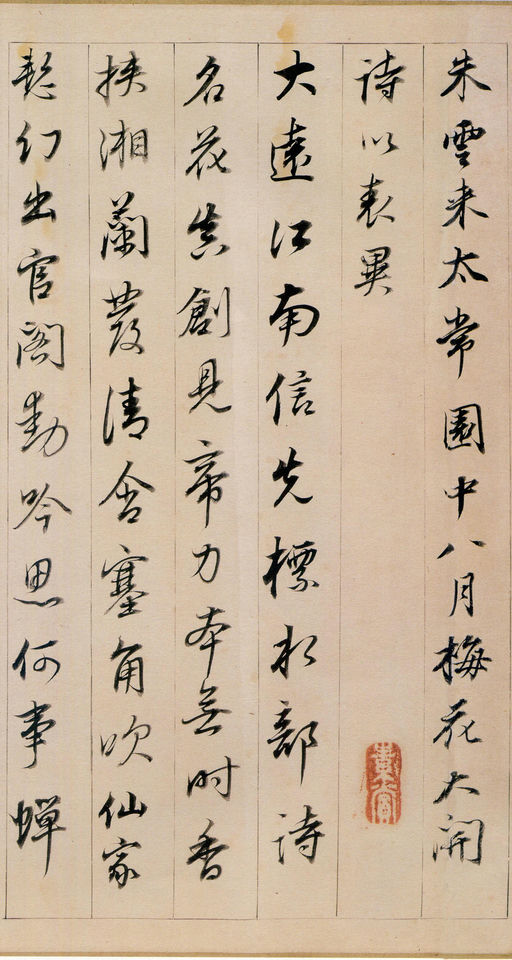 朱雲来太常園中八月梅花大開
詩以表異
大遠江南信先標水部詩
名花真創見帝力本無時香
挾湘蘭發清含塞角吹仙家
幻出官閣動吟思何事蟬